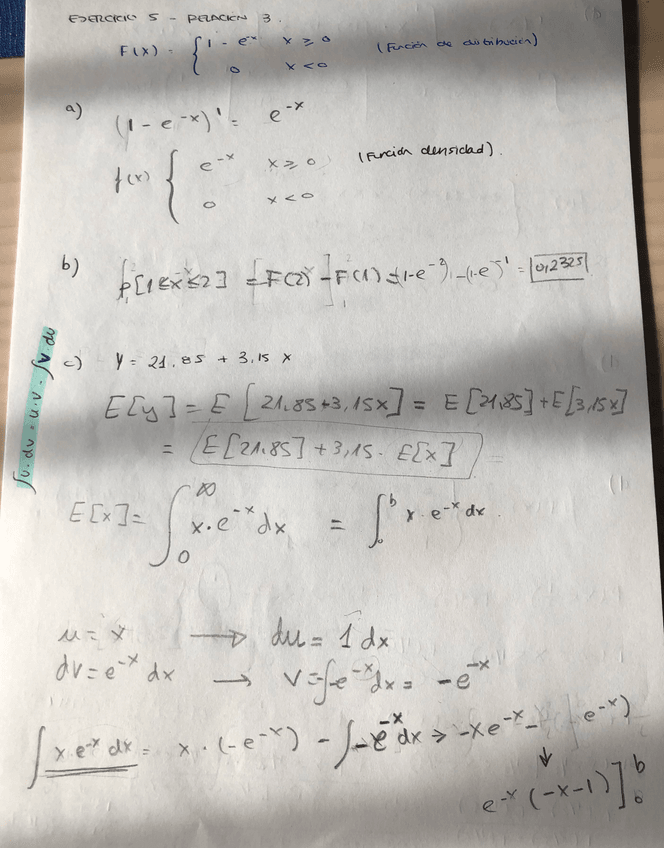 EJERCICIO 5 - RELACIÓN 3.
F(x) = { 1 - e^-x x ≥ 0 (Función de distribución)
0 x < 0
a) (1 - e^-x)' = e^-x
f(x) { e^-x x ≥ 0 (Función densidad).
0 x < 0
b) p[1 ≤ x ≤ 2] = F(2) - F(1) = (1-e^-2) - (1-e)^-1 = 0,2325
c) Y = 21.85 + 3,15 x
E[y] = E [21.85+3,15x] = E [21,85] + E[3,15x]
= E[21.85] + 3,15 · E[x] =
∫u·dv = u·v - ∫v·du
E[x] = ∫_0^∞ x·e^-x dx = ∫_0^b x·e^-x dx.
u = x → du = 1 dx
dv = e^-x dx → v = ∫e^-x dx = -e^-x
∫x·e^-x dx = x·(-e^-x) - ∫-e^-x dx → -xe^-x - e^-x)
↓
e^-x (-x-1)]_0^b